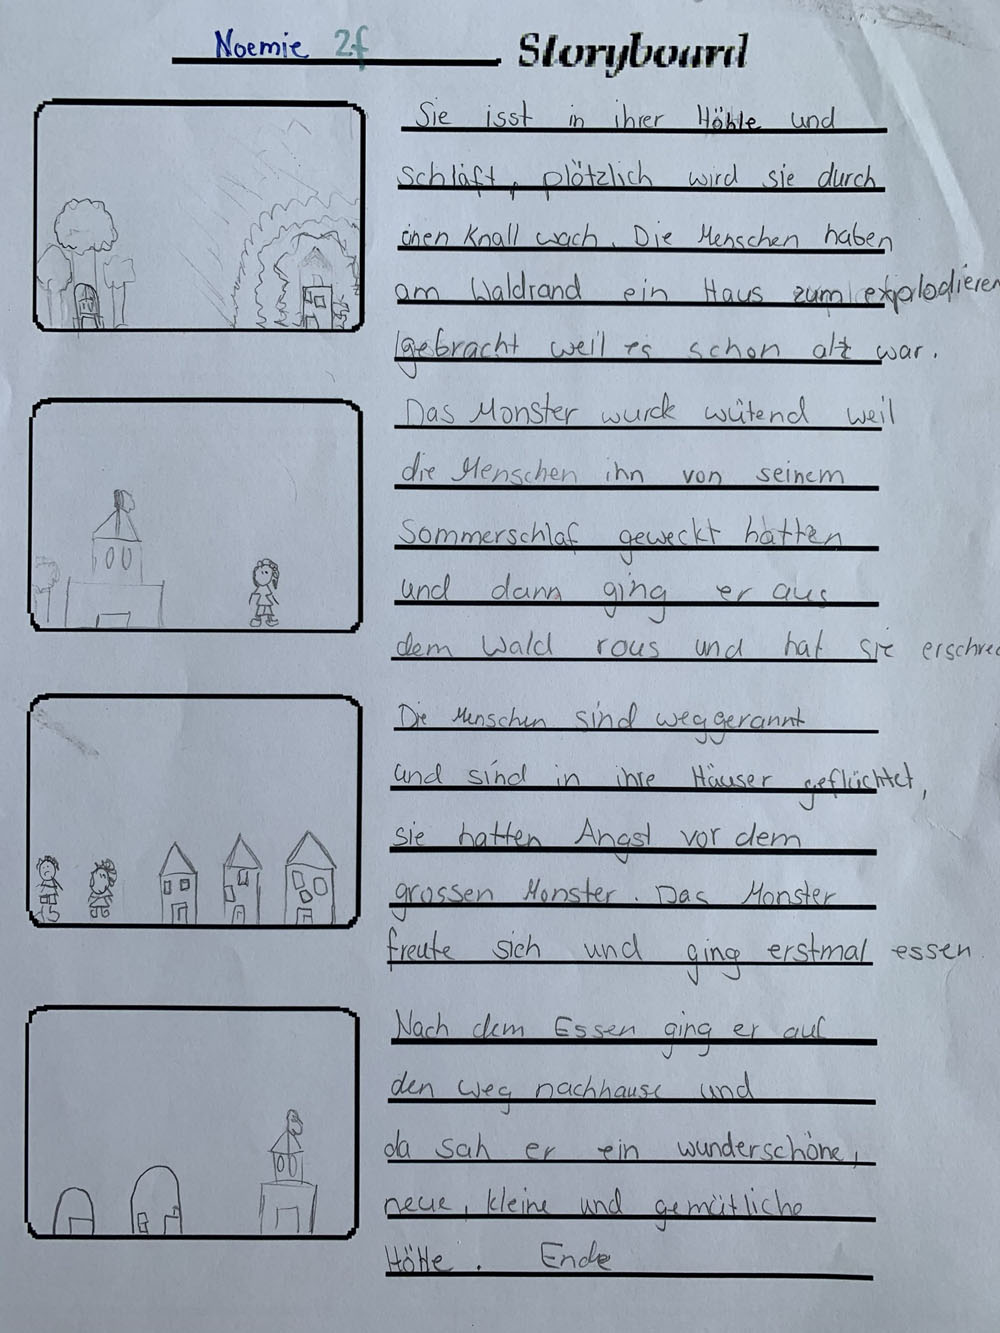 Noemie 2f Storyboard
Sie isst in ihrer Höhle und
schläft, plötzlich wird sie durch
einen Knall wach. Die Menschen haben
am Waldrand ein Haus zum explodieren
gebracht weil es schon alt war.
Das Monster wurde wütend weil
die Menschen ihn von seinem
Sommerschlaf geweckt hatten
und dann ging er aus
dem Wald raus und hat sie erschrec
Die Menschen sind weggerannt
und sind in ihre Häuser geflüchtet,
sie hatten Angst vor dem
grossen Monster. Das Monster
freute sich und ging erstmal essen.
Nach dem Essen ging er auf
den weg nachhause und
da sah er ein wunderschöne,
neue, kleine und gemütliche
Höhle. Ende